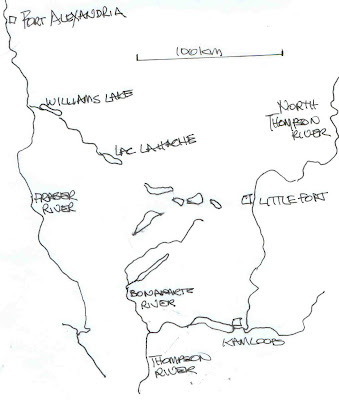 FORT ALEXANDRIA
100km
WILLIAMS LAKE
NORTH
THOMPSON
RIVER
LAC LA HACHE
FRASER
RIVER
LITTLE FORT
BONAPARTE
RIVER
KAMLOOPS
THOMPSON
RIVER